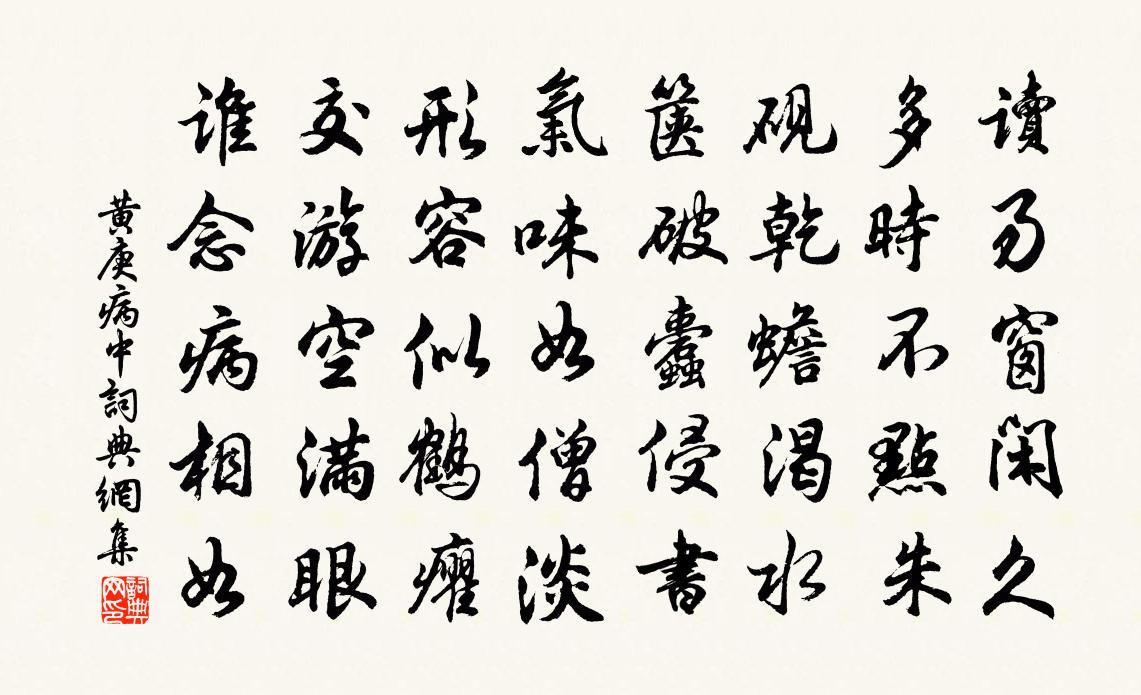 讀易窗閑久
多時不點朱
硯乾蟾渴水
篋破蠹侵書
氣味如僧淡
形容似鶴癯
交游空滿眼
誰念病相如
黄庚病中詞典網集
詞典网印